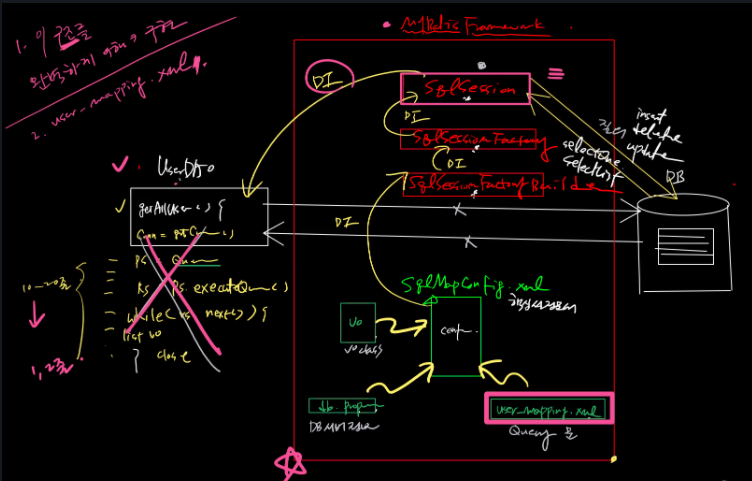 1. 이 구조를
완벽하게 이해 > 구현
2. user_mapping.xml
MyBatis Framework
DI
SqlSession
DI
SqlSessionFactory
DI
SqlSessionFactoryBuilder
insert
delete
update
selectone
selectList
DB
UserDAO
getAllUser() {
Conn = getConn()
PS Query
RS PS.executeQuery()
while(rs.next()) {
list vo
} close
10~20줄
1, 2줄
DI
SqlMapConfig.xml
conf.
VO
VO class
db.prop
DB서버정보
user_mapping.xml
Query 문